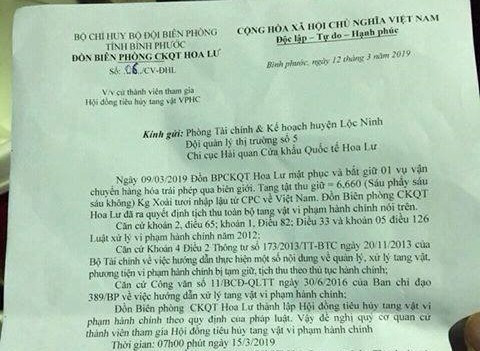 BỘ CHỈ HUY BỘ ĐỘI BIÊN PHÒNG
TỈNH BÌNH PHƯỚC
ĐỒN BIÊN PHÒNG CKQT HOA LƯ
Số: 06./CV-ĐHL
CỘNG HÒA XÃ HỘI CHỦ NGHĨA VIỆT NAM
Độc lập – Tự do – Hạnh phúc
Bình phước, ngày 12 tháng 3 năm 2019
V/v cử thành viên tham gia
Hội đồng tiêu hủy tang vật VPHC
Kính gửi: Phòng Tài chính & Kế hoạch huyện Lộc Ninh
Đội quản lý thị trường số 5
Chi cục Hải quan Cửa khẩu Quốc tế Hoa Lư
Ngày 09/03/2019 Đồn BPCKQT Hoa Lư mật phục và bắt giữ 01 vụ vận
chuyển hàng hóa trái phép qua biên giới. Tang tật thu giữ = 6,660 (Sáu phẩy sáu
sáu không) Kg Xoài tươi nhập lậu từ CPC về Việt Nam. Đồn Biên phòng CKQT
Hoa Lư đã ra quyết định tịch thu toàn bộ tang vật vi phạm hành chính nói trên.
Căn cứ khoản 2, điều 65; khoản 1, Điều 82; Điều 33 và khoản 05 điều 126
Luật xử lý vi phạm hành chính năm 2012;
Căn cứ Khoản 4 Điều 2 Thông tư số 173/2013/TT-BTC ngày 20/11/2013 của
Bộ Tài chính về việc hướng dẫn thực hiện một số nội dung về quản lý, xử lý tang vật,
phương tiện vi phạm hành chính bị tạm giữ, tịch thu theo thủ tục hành chính;
Căn cứ Công văn số 11/BCĐ-QLTT ngày 30/6/2016 của Ban chỉ đạo
389/BP về việc hướng dẫn xử lý tang vật vi phạm hành chính;
Đồn Biên phòng CKQT Hoa Lư thành lập Hội đồng tiêu hủy tang vật vi
phạm hành chính theo quy định của pháp luật. Vậy đề nghị quý cơ quan cử
thành viên tham gia Hội đồng tiêu hủy tang vật vi phạm hành chính
Thời gian: 07h00 phút ngày 15/3/2019